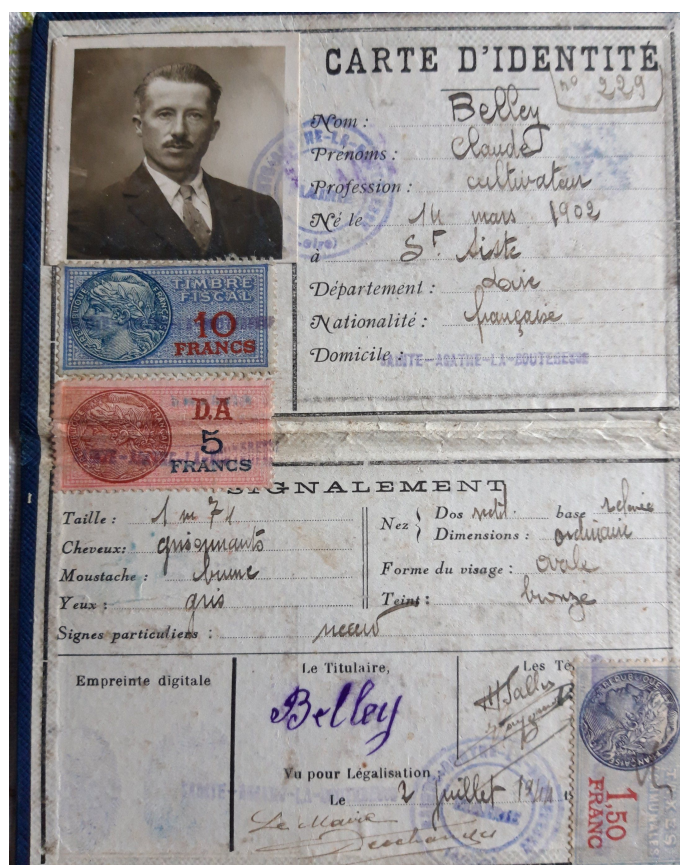 CARTE D'IDENTITÉ
nº 229
Nom : Belley
Prénoms : Claude
Profession : cultivateur
Né le 14 mars 1902
à St Sixte
Département : Loire
Nationalité : française
Domicile : SAINTE-AGATHE-LA-BOUTERESSE
TIMBRE FISCAL
10 FRANCS
D.A
5 FRANCS
SIGNALEMENT
Taille : 1 m 71
Cheveux : grisonnants
Moustache : brune
Yeux : gris
Nez { Dos rect. base relevée
Dimensions : ordinaire
Forme du visage : ovale
Teint : bronzé
Signes particuliers : néant
Empreinte digitale
Le Titulaire,
Belley
Les Té
Vu pour Légalisation :
Le 2 juillet
Le Maire
1,50 FRANC